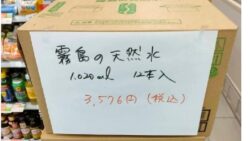 霧島の天然水
1.020ml 12本入
3,576円（税込）